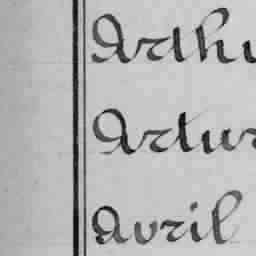 Arthu
Artur
Avril